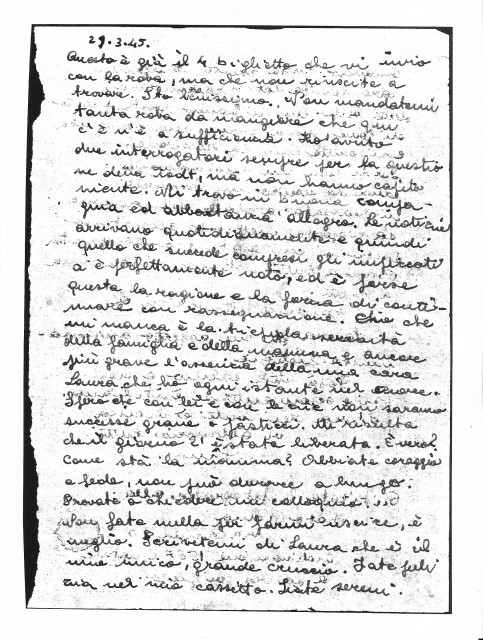 29.3.45.
Questo è già il 4 biglietto che vi invio
con la roba, ma che non riuscite a
trovare. Sto benissimo. Non mandatemi
tanta roba da mangiare che qui
c'è n'è a sufficienza. Ho avuto
due interrogatori sempre per la questio
ne della Todt, ma non hanno capito
niente. Mi trovo in buona compa-
gnia ed abbastanza allegro. Le notizie
arrivano quotidianamente e quindi
quello che succede compresi gli impiccati
a è perfettamente noto, ed è forse
questa la ragione e la forza di conti-
nuare con rassegnazione. Ciò che
mi manca è la tranquilla serenità
della famiglia e della mamma e ancore
più grave l'assenza della mia cara
Laura che ho ogni istante nel cuore.
Spero che con lei e con le zie non saranno
successe grane o fastidi. Mi risulta
che il giorno 21 è stata liberata. È vero?
Come stà la mamma? Abbiate coraggio
e fede, non può durare a lungo.
Provate a chiedere un colloquio...
Non fate nulla per farmi uscire, è
meglio. Scrivetemi di Laura che è il
mio unico, grande cruccio. Fate puli
zia nel mio cassetto. Siate sereni.